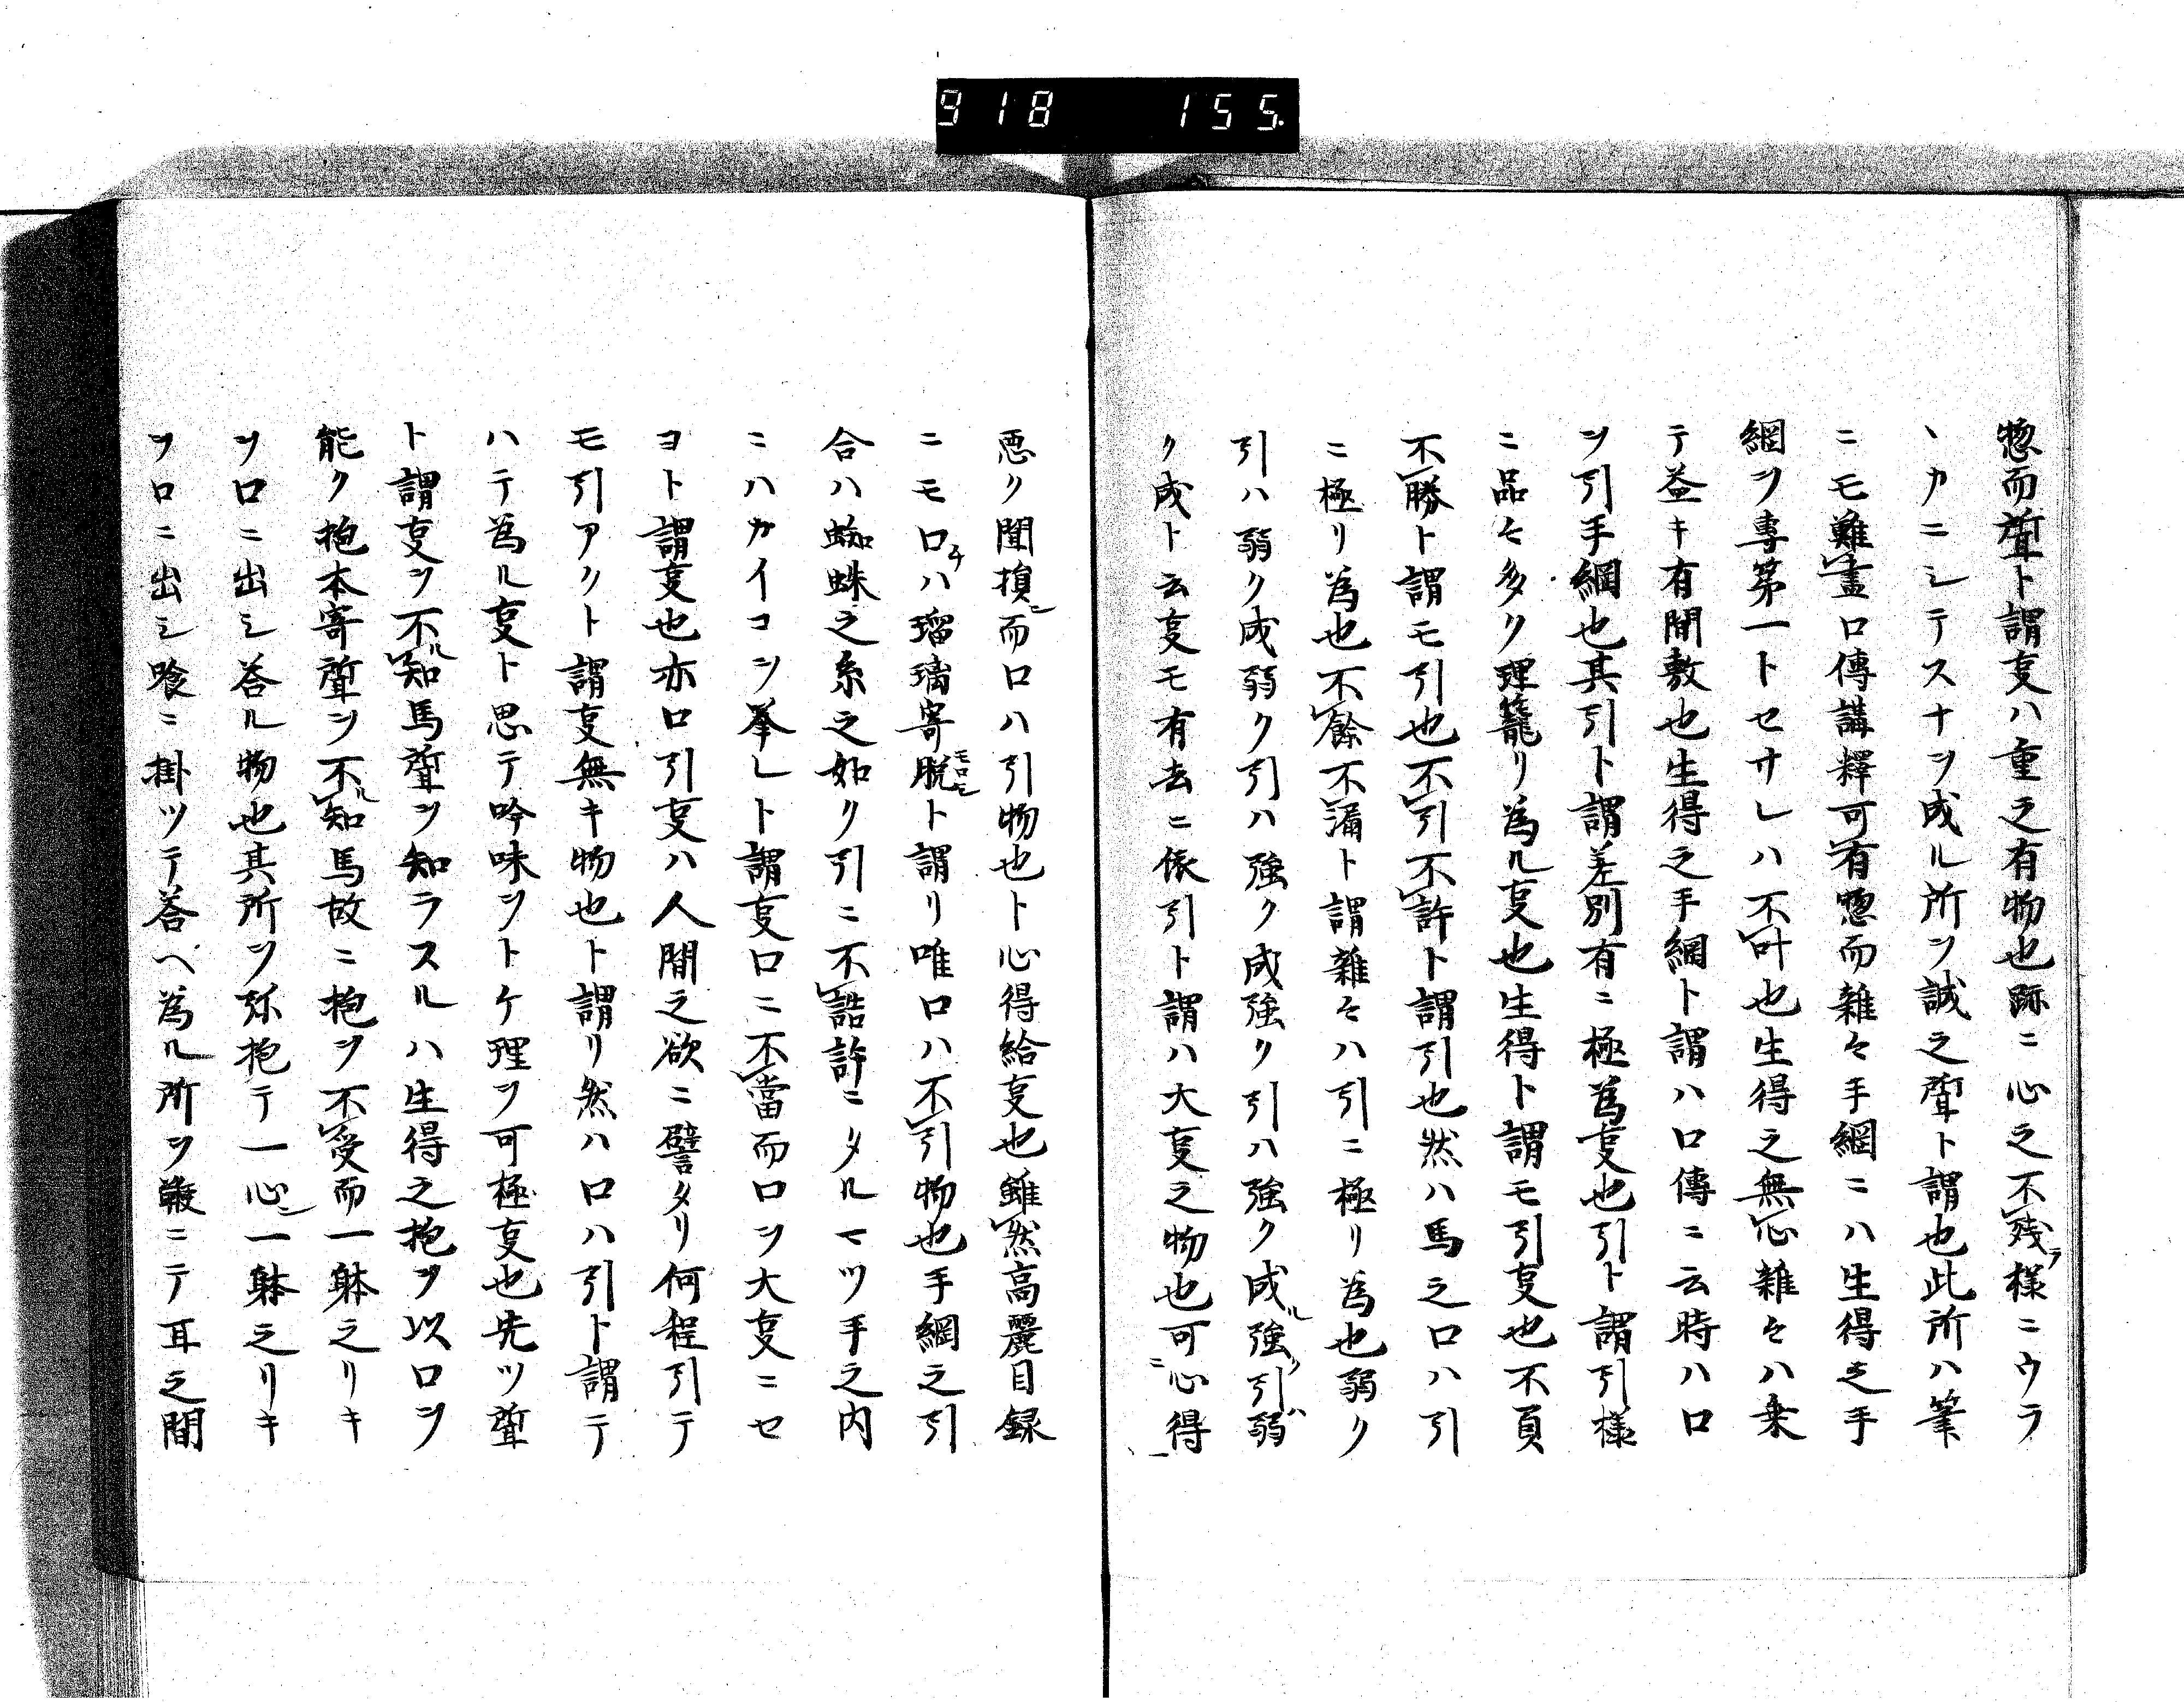 918 155.
惣而聟ト謂叓ハ重之有物也跡ニ心之不残ラ様ニウラ
ヽカニシテスナヲ成ル所ヲ誠之聟ト謂也此所ハ筆
ニモ難盡口傳講釋可有惣而雑々手綱ニハ生得之手
綱ヲ專第一トセサレハ不叶也生得之無心雑々ハ乗
テ益キ有間敷也生得之手綱ト謂ハ口傳ニ云時ハ口
ヲ引手綱也其引ト謂差別有ニ極為叓也引ト謂引様
ニ品々多ク理籠リ為ル叓也生得ト謂モ引叓也不負
不勝ト謂モ引也不引不許ト謂引也然ハ馬之口ハ引
ニ極リ為也不餘不漏ト謂雑々ハ引ニ極リ為也弱ク
引ハ弱ク成弱ク引ハ強ク成強ク引ハ強ク成ル強ク引ハ弱
ク成ト云叓モ有去ニ依引ト謂ハ大叓之物也可心得ニ
悪ク聞損ニ而口ハ引物也ト心得給叓也雖然高麗目録
ニモ口チハ瑠璃寄脱モロモニト謂リ唯口ハ不引物也手綱之引
合ハ蜘蛛之糸之如ク引ニ不詰許ニタルマツ手之内
ニハカイコヲ挙レト謂叓口ニ不當而口ヲ大叓ニセ
ヨト謂叓也亦口引叓ハ人間之欲ニ譬タリ何程引テ
モ引アクト謂叓無キ物也ト謂リ然ハ口ハ引ト謂テ
ハテ為ル叓ト思テ吟味ヲトケ理ヲ可極叓也先ツ聟
ト謂叓ヲ不知ル馬聟ヲ知ラスルハ生得之抱ヲ以口ヲ
能ク抱本寄聟ヲ不知ル馬故ニ抱ヲ不受而一躰之リキ
ヲ口ニ出シ荅ル物也其所ヲ弥抱テ一心ニ一躰之リキ
ヲ口ニ出シ喰ニ掛ツテ荅ヘ為ル所ヲ鞭ニテ耳之間